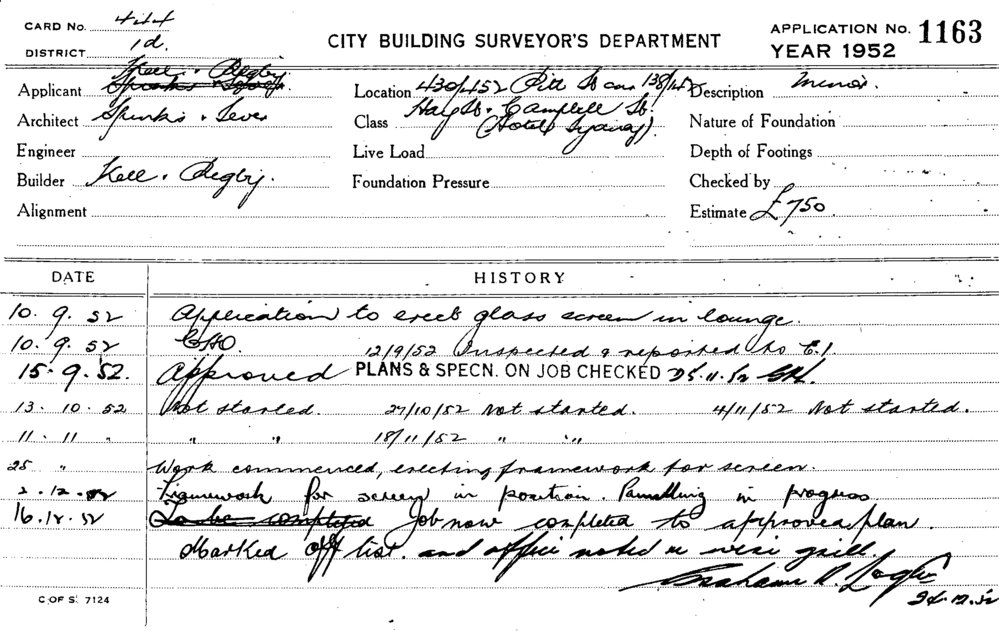 CARD No.
DISTRICT 1d.
CITY BUILDING SURVEYOR'S DEPARTMENT
APPLICATION No. 1163
YEAR 1952
Kell & Rigby.
Applicant
Architect Spinks &
Engineer
Builder Kell & Rigby.
Alignment
Location 430/452 Pitt St cor 138/
Hay St & Campbell St.
Class (Hotel Sydney).
Live Load
Foundation Pressure
Description Minor.
Nature of Foundation
Depth of Footings
Checked by
Estimate £750.
DATE HISTORY
10. 9. 52 Application to erect glass screen in lounge.
10. 9. 52 12/9/52 Inspected & reported to C.I.
15. 9. 52. Approved PLANS & SPECN. ON JOB CHECKED 25.11.52
13. 10. 52 Not started. 27/10/52 Not started. 4/11/52 Not started.
11. 11 " " " 18/11/52 " "
25 " Work commenced, erecting framework for screen.
2. 12. 52 Framework for screen in position. Panelling in progress
16.12.52 To be completed Job now completed to approved plan.
Marked off list. and office noted re wire grill.
24.12.52
C OF S. 7124